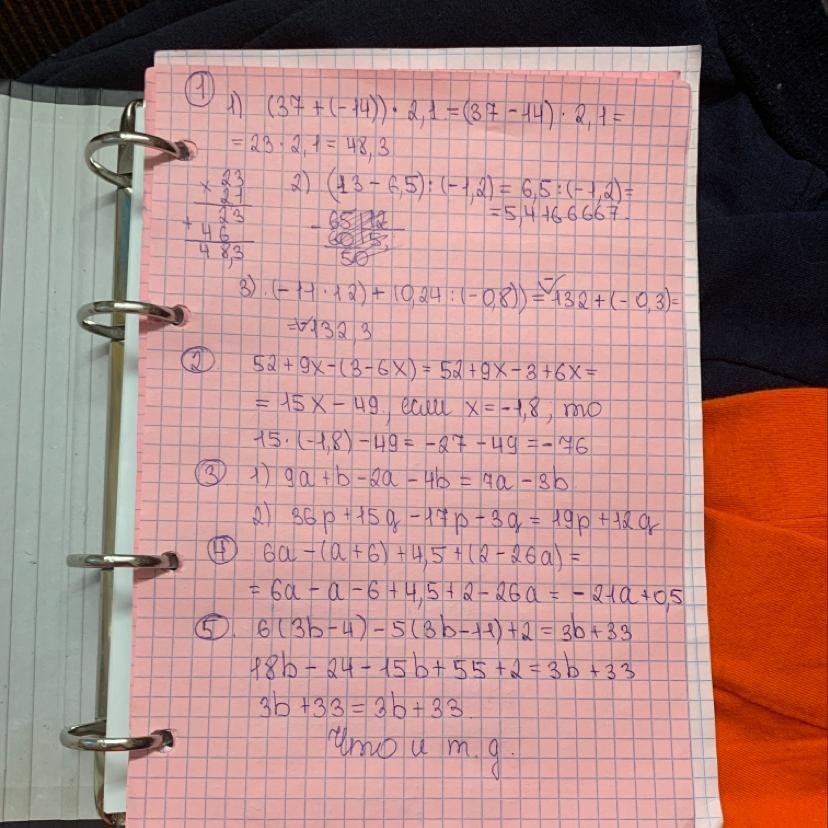 1
1) (37 + (-14)) · 2,1 = (37 - 14) · 2,1 =
= 23 · 2,1 = 48,3
× 23
21
23
+ 46
48,3
2) (13 - 6,5) : (-1,2) = 6,5 : (-1,2) =
= 5,4166667
- 65 | 12
60 | 5,
50
3). (-11 · 12) + (0,24 : (-0,8)) = -132 + (-0,3) =
= -132,3
2 52 + 9x - (3 - 6x) = 52 + 9x - 3 + 6x =
= 15x - 49, если x = -1,8, то
15 · (-1,8) - 49 = -27 - 49 = -76
3 1) 9a + b - 2a - 4b = 7a - 3b
2) 36p + 15q - 17p - 3q = 19p + 12q
4 6a - (a + 6) + 4,5 + (2 - 26a) =
= 6a - a - 6 + 4,5 + 2 - 26a = -21a + 0,5
5. 6(3b - 4) - 5(3b - 11) + 2 = 3b + 33
18b - 24 - 15b + 55 + 2 = 3b + 33
3b + 33 = 3b + 33
Что и т. д.